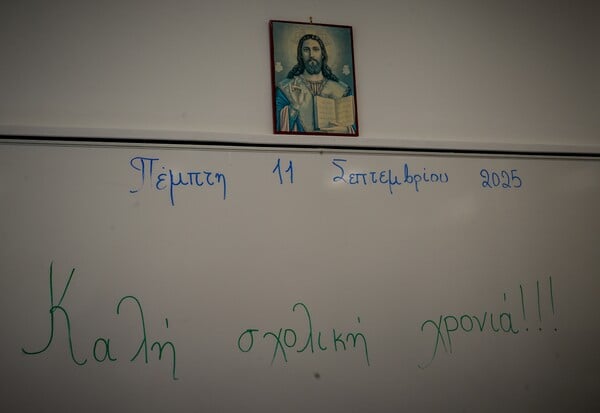 Πέμπτη 11 Σεπτεμβρίου 2025
Καλή σχολική χρονιά!!!